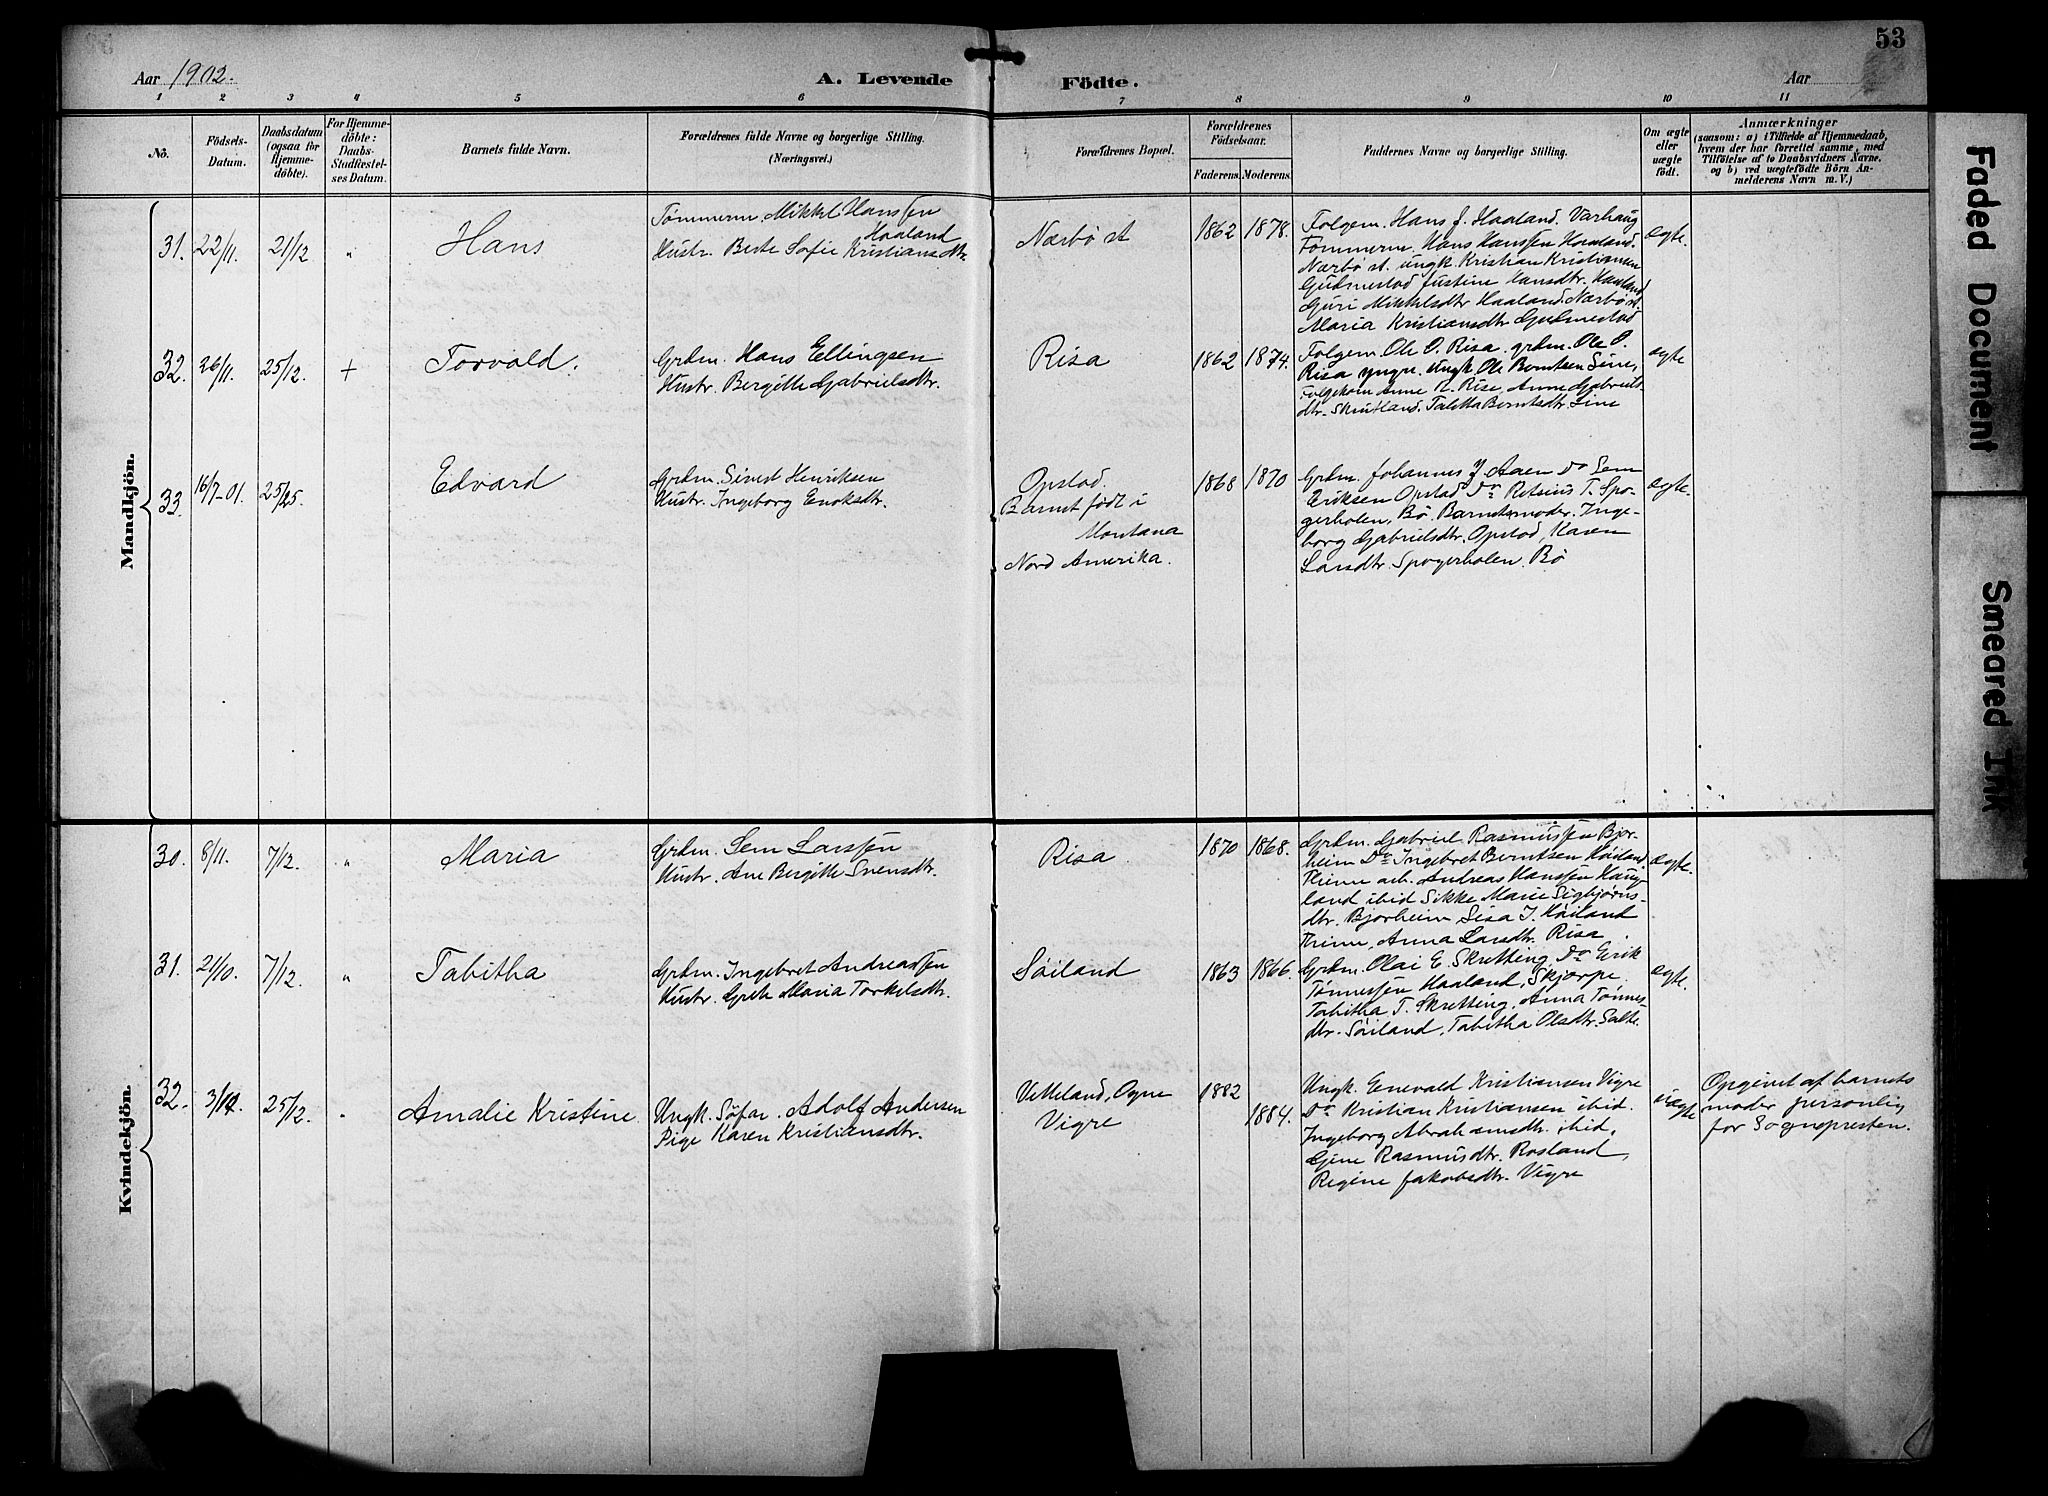 53
Aar 1902.
A. Levende Födte.
Aar
1 2 3 4 5 6 7 8 9 10 11
Nô.
Födsels-
Datum.
Daabsdatum
(ogsaa for
Hjemme-
döbte).
For Hjemme-
döbte:
Daabs-
Stadfæstel-
ses Datum.
Barnets fulde Navn.
Forældrenes fulde Navne og borgerlige Stilling.
(Næringsvei.)
Forældrenes Bopæl.
Forældrenes
Födselsaar.
Faderens. Moderens.
Faddernes Navne og borgerlige Stilling.
Om ægte
eller
uægte
födt.
Anmærkninger
(saasom: a) i Tilfælde af Hjemmedaab,
hvem der har forrettet samme, med
Tilföielse af to Daabsvidners Navne,
og b) ved uægtefödte Börn An-
melderens Navn m. V.)
Mandkjön.
31. 22/11. 21/12 " Hans
Tømmerm. Mikkel Hanssen
Haaland
Hustr. Berte Sofie Kristiansdtr.
Nærbö st
1862 1878.
Folgem. Hans J. Haaland. Varhaug
Tømmerm. Hans Hanssen Haaland.
Nærbö st. ungk. Kristian Kristiansen
Gudmestad Justine Hansdtr. Haaland
Guri Mikkelsdtr Haaland. Nærbö st.
Maria Kristiansdtr Gudmestad
ægte.
32. 26/11. 25/12. + Torvald.
Grdm. Hans Ellingsen
Hustr. Bergitte Gabrielsdtr.
Risa
1862 1874.
Folgem. Ole O. Risa. grdm. Ole O.
Risa yngre. Ungk. Ole Berntsen Line,
Folgekom Anne R. Risa, Anne Gabriels-
dtr. Skrutland. Talitta Berntsdtr. Line
ægte
33. 16/7-01. 25/25. Edvard
Grdm. Sivert Henriksen
Hustr. Ingeborg Enoksdtr.
Opstad.
Barnet født i
Montana
Nord Amerika.
1868 1870
Grdm. Johannes J. Aaen Do Sem
Eriksen Opstad Do Retsius T. Spo-
gerholen, Bö. Barnets moder. Inge-
borg Gabrielsdtr. Opstad, Karen
Larsdtr. Spogerholen. Bö
ægte.
Kvindekjön.
30. 8/11. 7/12. " Maria
Grdm. Sem Larssen
Hustr. Ane Bergitte Svensdtr.
Risa
1870 1868.
Grdm. Gabriel Rasmussen Bjor-
heim Do Ingebret Berntsen Höiland
Thime arb. Andreas Hanssen Haug-
land ibid Sikke Marie Sigbjørns-
dtr. Bjorheim Lisa J. Höiland
Thime, Anna Larsdtr. Risa
ægte.
31. 21/10. 7/12. " Tabitha
Grdm. Ingebret Andreassen
Hustr. Grete Maria Torkelsdtr.
Söiland
1863 1866.
Grdm. Olai E. Skretting. Do Erik
Tönnessen Haaland, Skjærpe.
Tabitha T. Skretting, Anna Tönnes-
dtr. Söiland, Tabitha Olsdtr. Salte.
ægte.
32. 25/12. " Amalie Kristine.
Ungk. Söfar. Adolf Andersen
Pige Karen Kristiansdtr.
Vetteland, Ogne
Vigre
1882
1884.
Ungk. Enevald Kristiansen Vigre
Do Kristian Kristiansen ibid.
Ingeborg Abrahamsdtr. ibid.
Gine Rasmusdtr. Rosland,
Regine Jakobsdtr. Vigre
uægte
Opgivet af barnets
moder personlig
for Sognepresten.
Faded Document
Smeared Ink